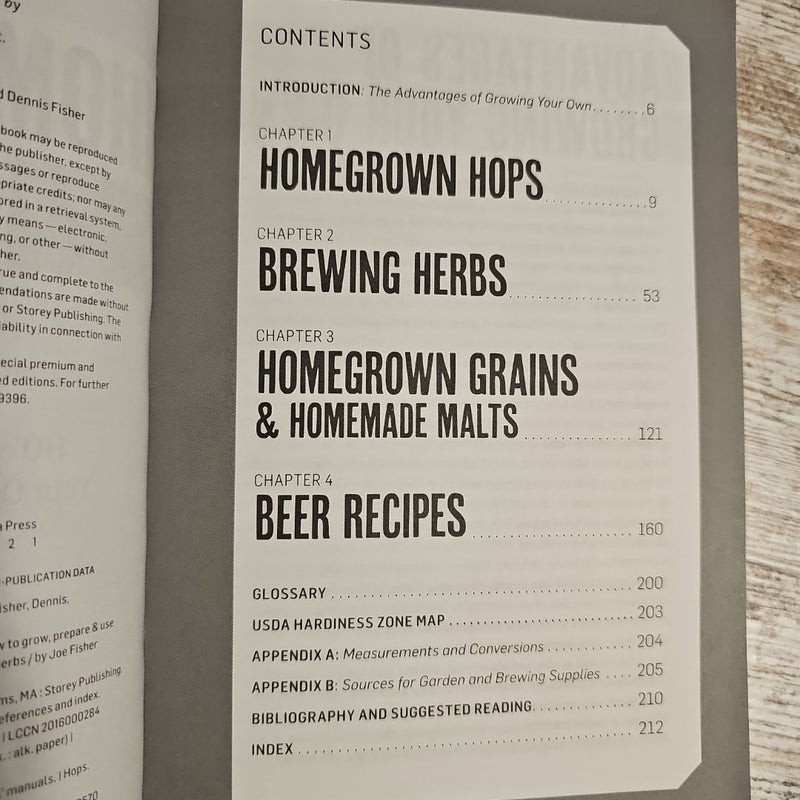 by
t.
d Dennis Fisher
book may be reproduced
he publisher, except by
ssages or reproduce
opriate credits; nor may any
ored in a retrieval system,
y means — electronic,
ng, or other — without
her.
rue and complete to the
endations are made without
or Storey Publishing. The
iability in connection with
ecial premium and
ed editions. For further
9396.
a Press
2 1
-PUBLICATION DATA
isher, Dennis.
w to grow, prepare & use
erbs / by Joe Fisher
ms, MA : Storey Publishing
eferences and index.
| LCCN 2016000284
k. : alk. paper) |
' manuals. | Hops.
8570
CONTENTS
INTRODUCTION: The Advantages of Growing Your Own........6
CHAPTER 1
HOMEGROWN HOPS...............9
CHAPTER 2
BREWING HERBS.................. 53
CHAPTER 3
HOMEGROWN GRAINS
& HOMEMADE MALTS............... 121
CHAPTER 4
BEER RECIPES...................... 160
GLOSSARY........................................ 200
USDA HARDINESS ZONE MAP........................ 203
APPENDIX A: Measurements and Conversions......... 204
APPENDIX B: Sources for Garden and Brewing Supplies.... 205
BIBLIOGRAPHY AND SUGGESTED READING............ 210
INDEX............................................. 212